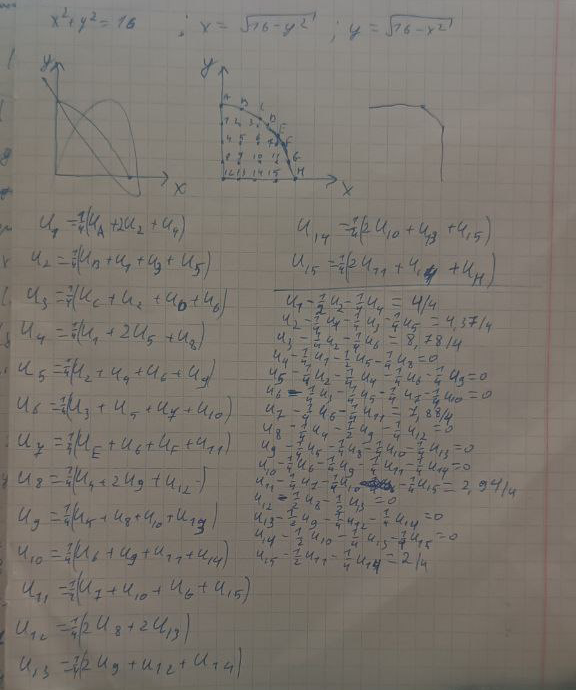 x²+y²=16 ; x = √16-y² ; y = √16-x²
y
x
y
A B C D E F G H
1 2 3
4 5 6 7
8 9 10 11
12 13 14 15
x
U₁ =¼(U_A +2U₂ +U₄)
U₂ =¼(U_B+U₁ +U₃ +U₅)
U₃ =¼(U_C + U₂ +U_D +U₆)
U₄ =¼(U₁ + 2U₅ +U₈)
U₅ =¼(U₂ +U₄ +U₆ +U₉)
U₆ =¼(U₃ + U₅ +U₇ +U₁₀)
U₇ =¼(U_E +U₆ +U_F +U₁₁)
U₈ =¼(U₄ +2U₉ +U₁₂)
U₉ =¼(U₅ +U₈ +U₁₀ +U₁₃)
U₁₀ =¼(U₆ +U₉ +U₁₁ +U₁₄)
U₁₁ =¼(U₇ +U₁₀ +U_G +U₁₅)
U₁₂ =¼(2U₈ +2U₁₃)
U₁₃ =¼(2U₉ +U₁₂ +U₁₄)
U₁₄ =¼(2U₁₀ +U₁₃ +U₁₅)
U₁₅ =¼(2U₁₁ +U₁₄ +U_H)
U₁ -½U₂ -¼U₄ = 4/4
U₂ -¼U₁ -¼U₃ -¼U₅ = 4,37/4
U₃ -¼U₂ -¼U₆ = 8,78/4
U₄ -¼U₁ -½U₅ -¼U₈ =0
U₅ -¼U₂ -¼U₄ -¼U₆ -¼U₉ =0
U₆ -¼U₃ -¼U₅ -¼U₇ -¼U₁₀ =0
U₇ -¼U₆ -¼U₁₁ = 7,88/4
U₈ -¼U₄ -½U₉ -¼U₁₂ =0
U₉ -¼U₅ -¼U₈ -¼U₁₀ -¼U₁₃ =0
U₁₀ -¼U₆ -¼U₉ -¼U₁₁ -¼U₁₄ =0
U₁₁ -¼U₇ -¼U₁₀ -¼U₁₅ = 2,94/4
U₁₂ -½U₈ -½U₁₃ =0
U₁₃ -½U₉ -¼U₁₂ -¼U₁₄ =0
U₁₄ -½U₁₀ -¼U₁₃ -¼U₁₅ =0
U₁₅ -½U₁₁ -¼U₁₄ = 2/4